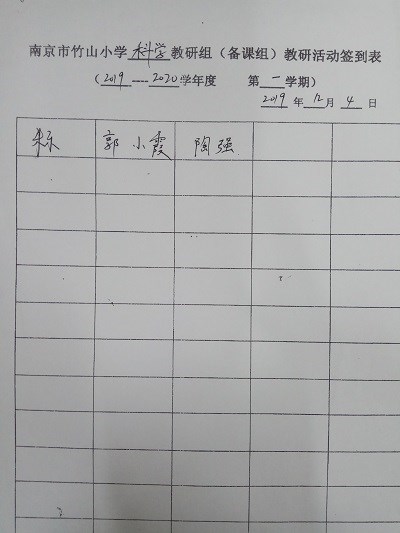 南京市竹山小学科学教研组（备课组）教研活动签到表
（2019----2020学年度 第一学期）
2019年12月4日
郭小霞 陶强